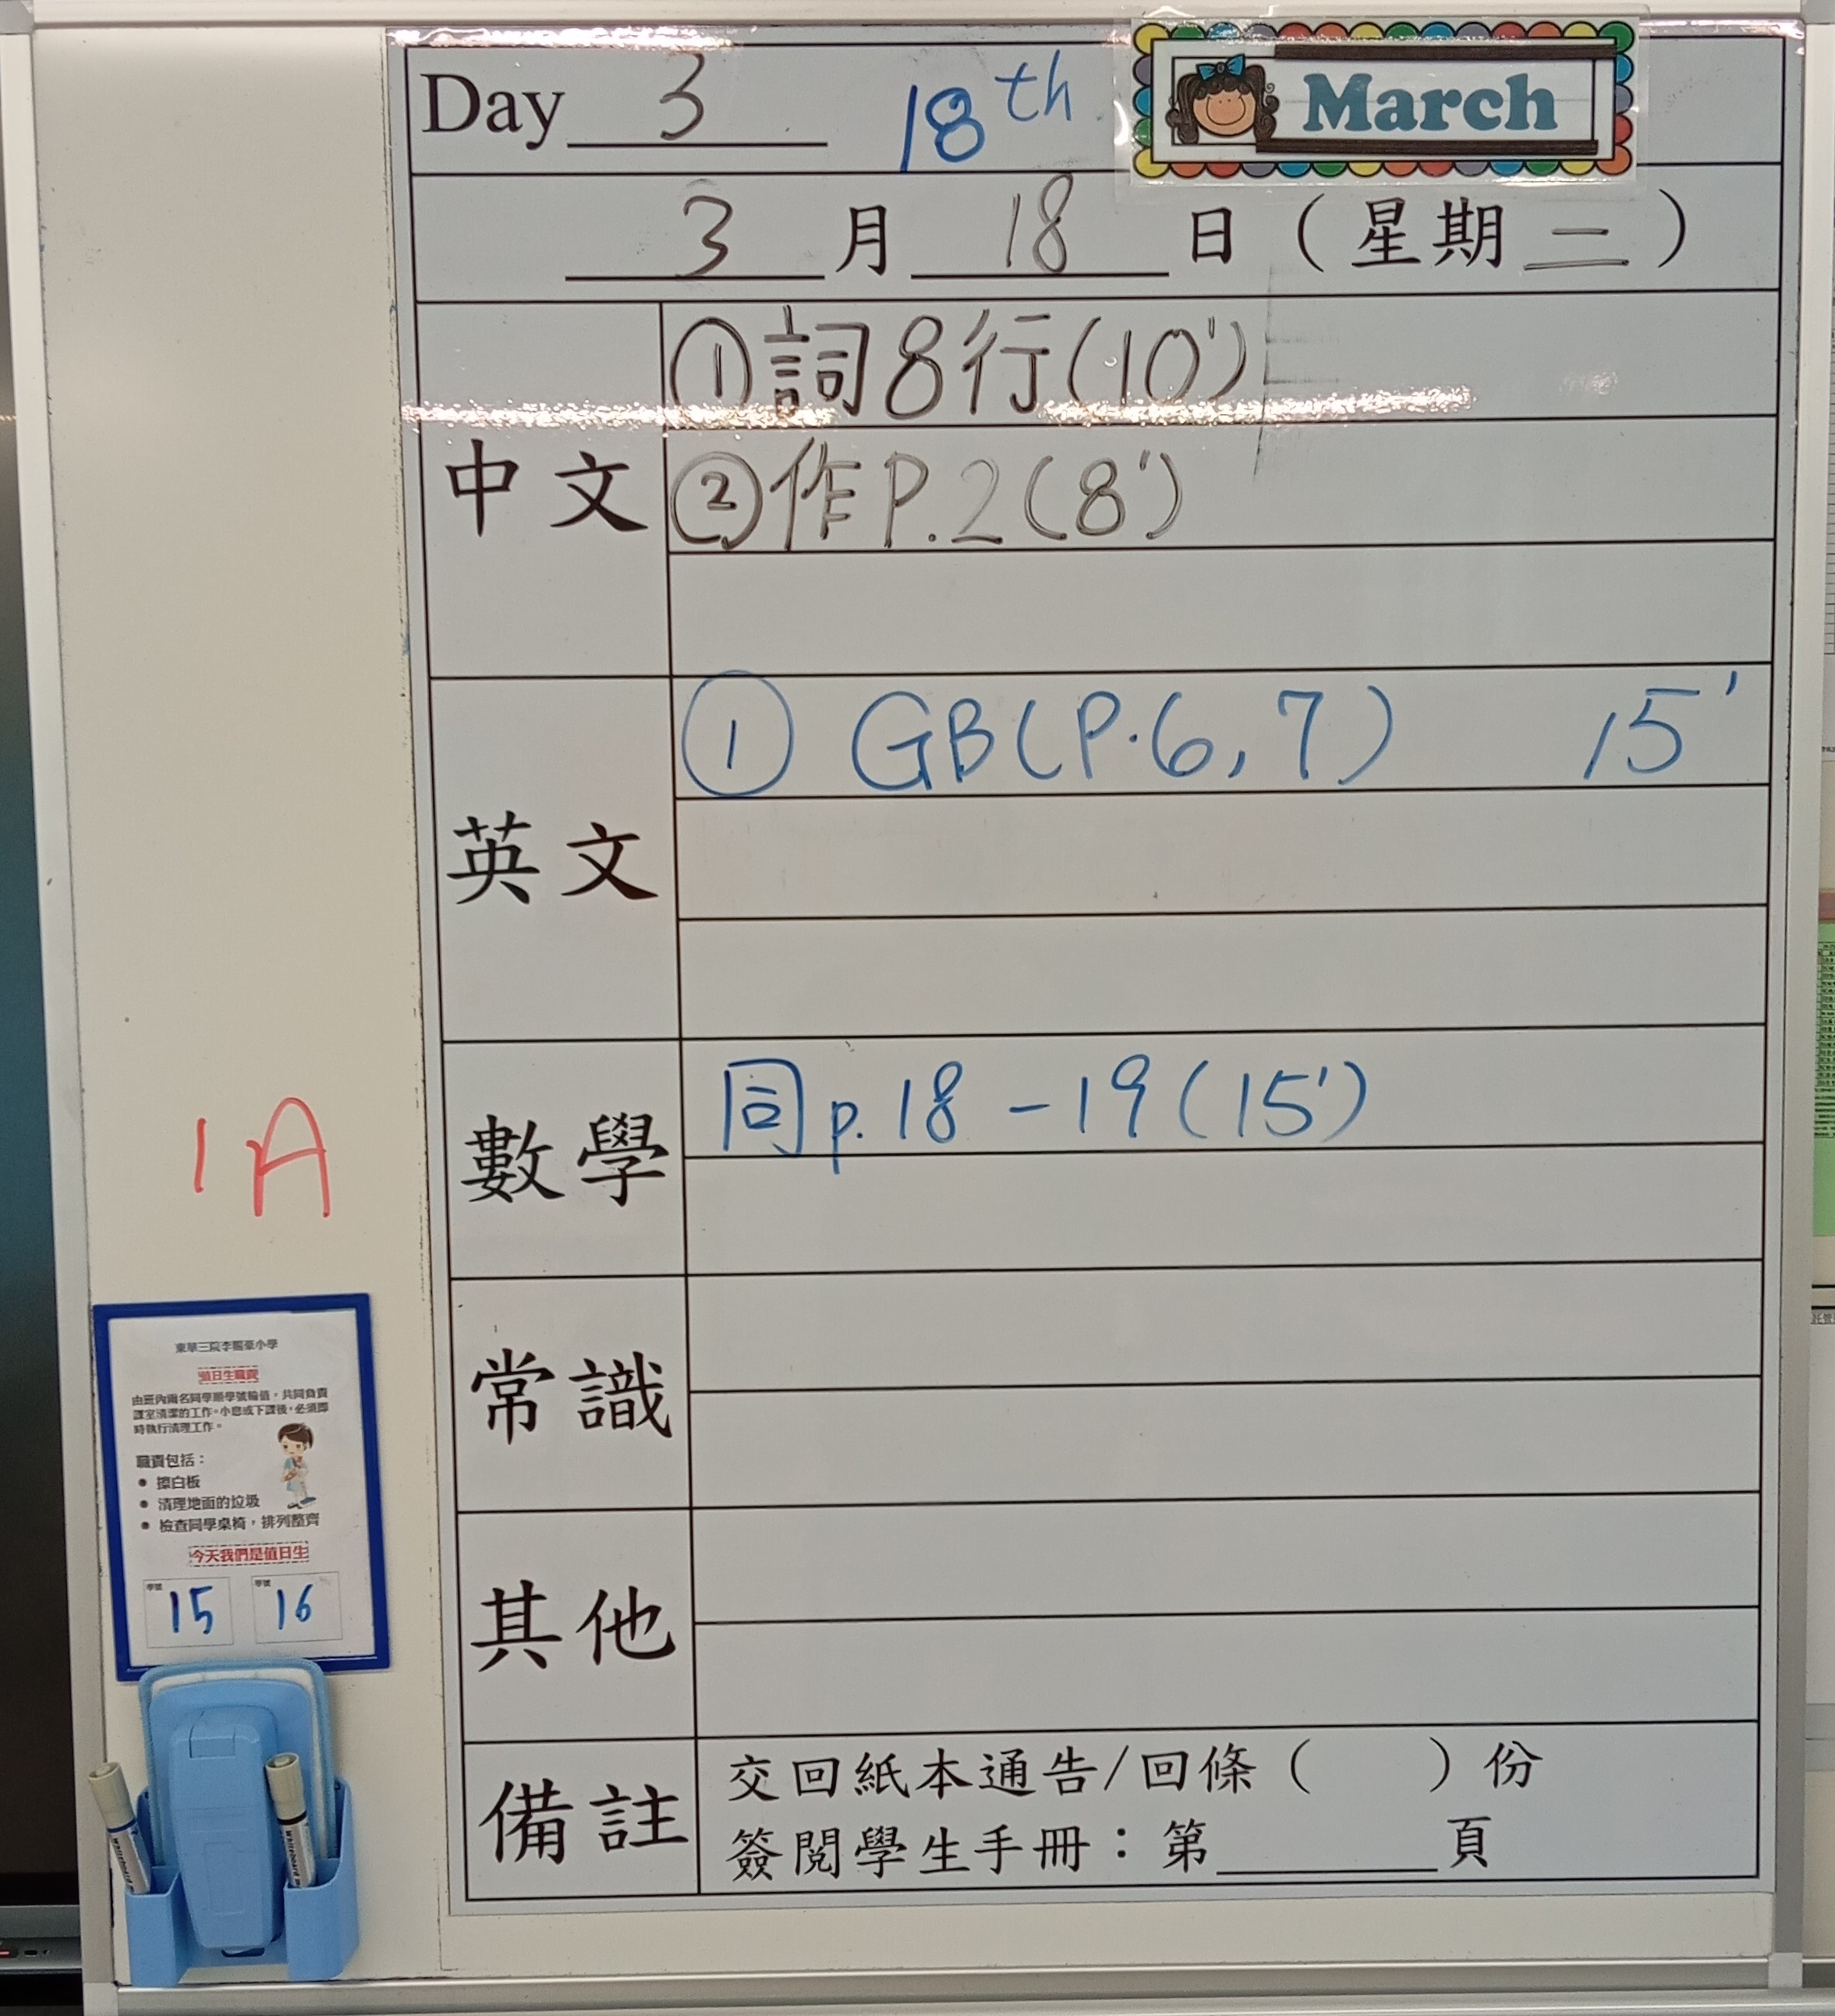 Day 3 18th March
3 月 18 日 (星期二)
中文
①詞8行(10')
②作P.2(8')
英文
① GB(P.6,7) 15'
數學
同p.18-19(15')
常識
其他
備註
交回紙本通告/回條( )份
簽閱學生手冊：第______頁
1A
東華三院李賜豪小學
值日生職責
由班內兩名同學順學號輪值，共同負責
課室清潔的工作。小息或下課後，必須即
時執行清理工作。
職責包括：
● 擦白板
● 清理地面的垃圾
● 檢查同學桌椅，排列整齊
今天我們是值日生
學號 15 學號 16